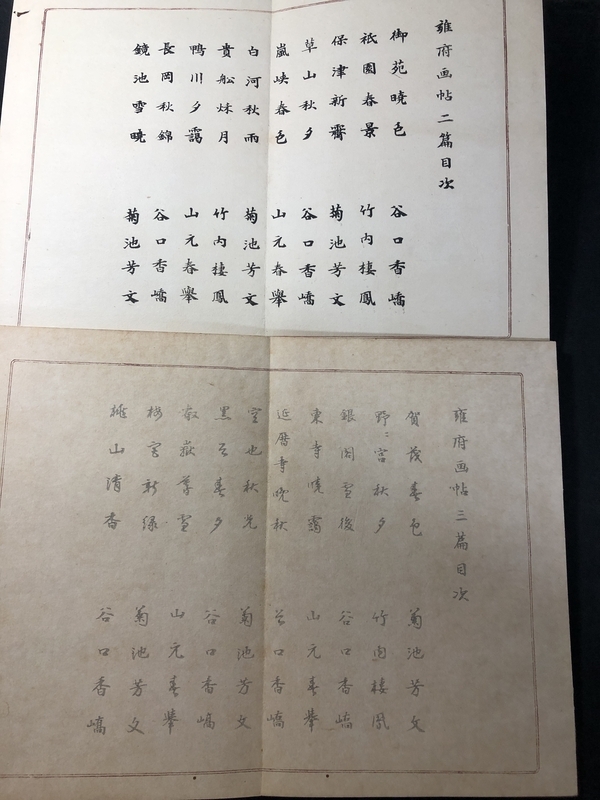 雍府画帖二篇目次
御苑曉色 谷口香嶠
祇園春景 竹內棲鳳
保津新霽 菊池芳文
草山秋夕 谷口香嶠
嵐峡春色 山元春舉
白河秋雨 菊池芳文
貴船秌月 竹內棲鳳
鴨川夕靄 山元春舉
長岡秋錦 谷口香嶠
鏡池雪曉 菊池芳文
雍府画帖三篇目次
賀茂春色 菊池芳文
野々宮秋夕 竹内棲鳳
銀閣雪後 谷口香嶠
東寺曉靄 山元春舉
延暦寺晩秋 谷口香嶠
空也秋光 菊池芳文
黒谷春夕 谷口香嶠
叡嶽早雪 山元春舉
梅宮新緑 菊池芳文
桃山清香 谷口香嶠